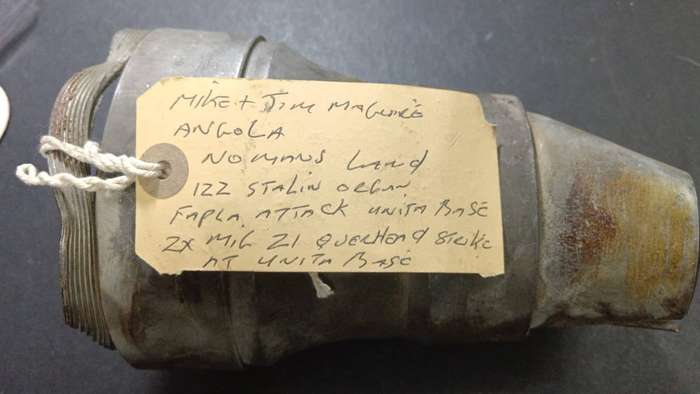 MIKE + JIM MAGUIRE
ANGOLA
NO MANS LAND
122 STALIN ORGAN
FAPLA ATTACK UNITA BASE
2X MIG 21 OVERHEAD STRIKE
AT UNITA BASE